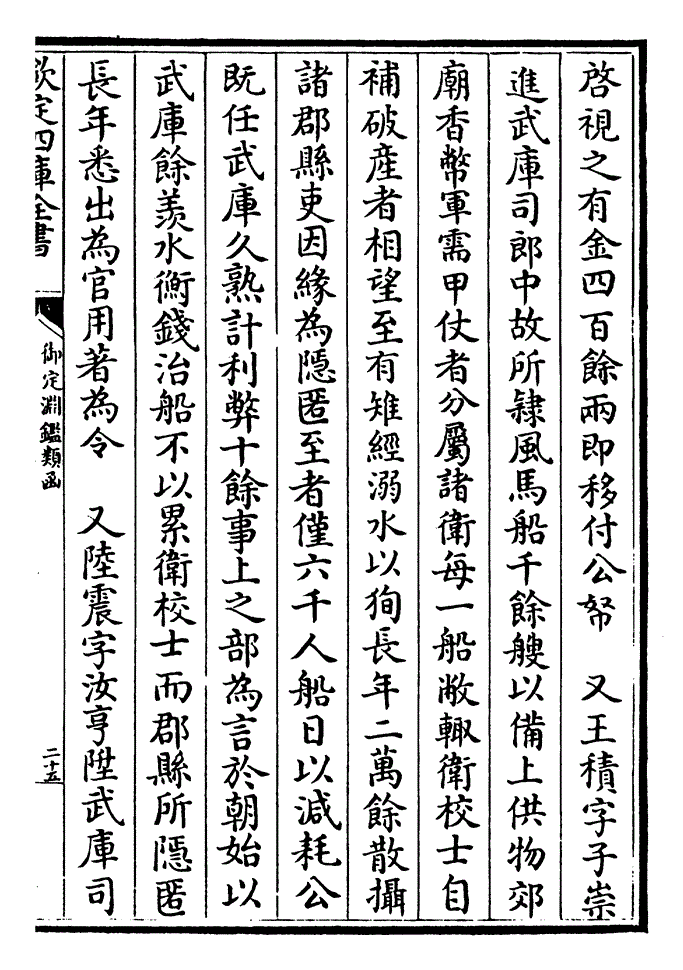 啓視之有金四百餘兩即移付公帑　又王積字子崇
進武庫司郎中故所隷風馬船千餘艘以備上供物郊
廟香幣軍需甲仗者分屬諸衛每一船敝輙衛校士自
補破産者相望至有雉經溺水以狥長年二萬餘散攝
諸郡縣吏因緣為隠匿至者僅六千人船日以減耗公
既任武庫久熟計利弊十餘事上之部為言於朝始以
武庫餘羨水衡錢治船不以累衛校士而郡縣所隠匿
長年悉出為官用著為令　又陸震字汝亨陞武庫司
欽定四庫全書
御定淵鑑類函
二十五